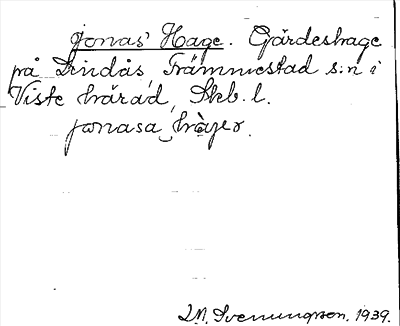 Jonas' Hage. Gärdeshage
på Lindås, Främmestad s:n i
Viste härad, Skb. l.
jonasa hàger.
Svenungson. 1939.